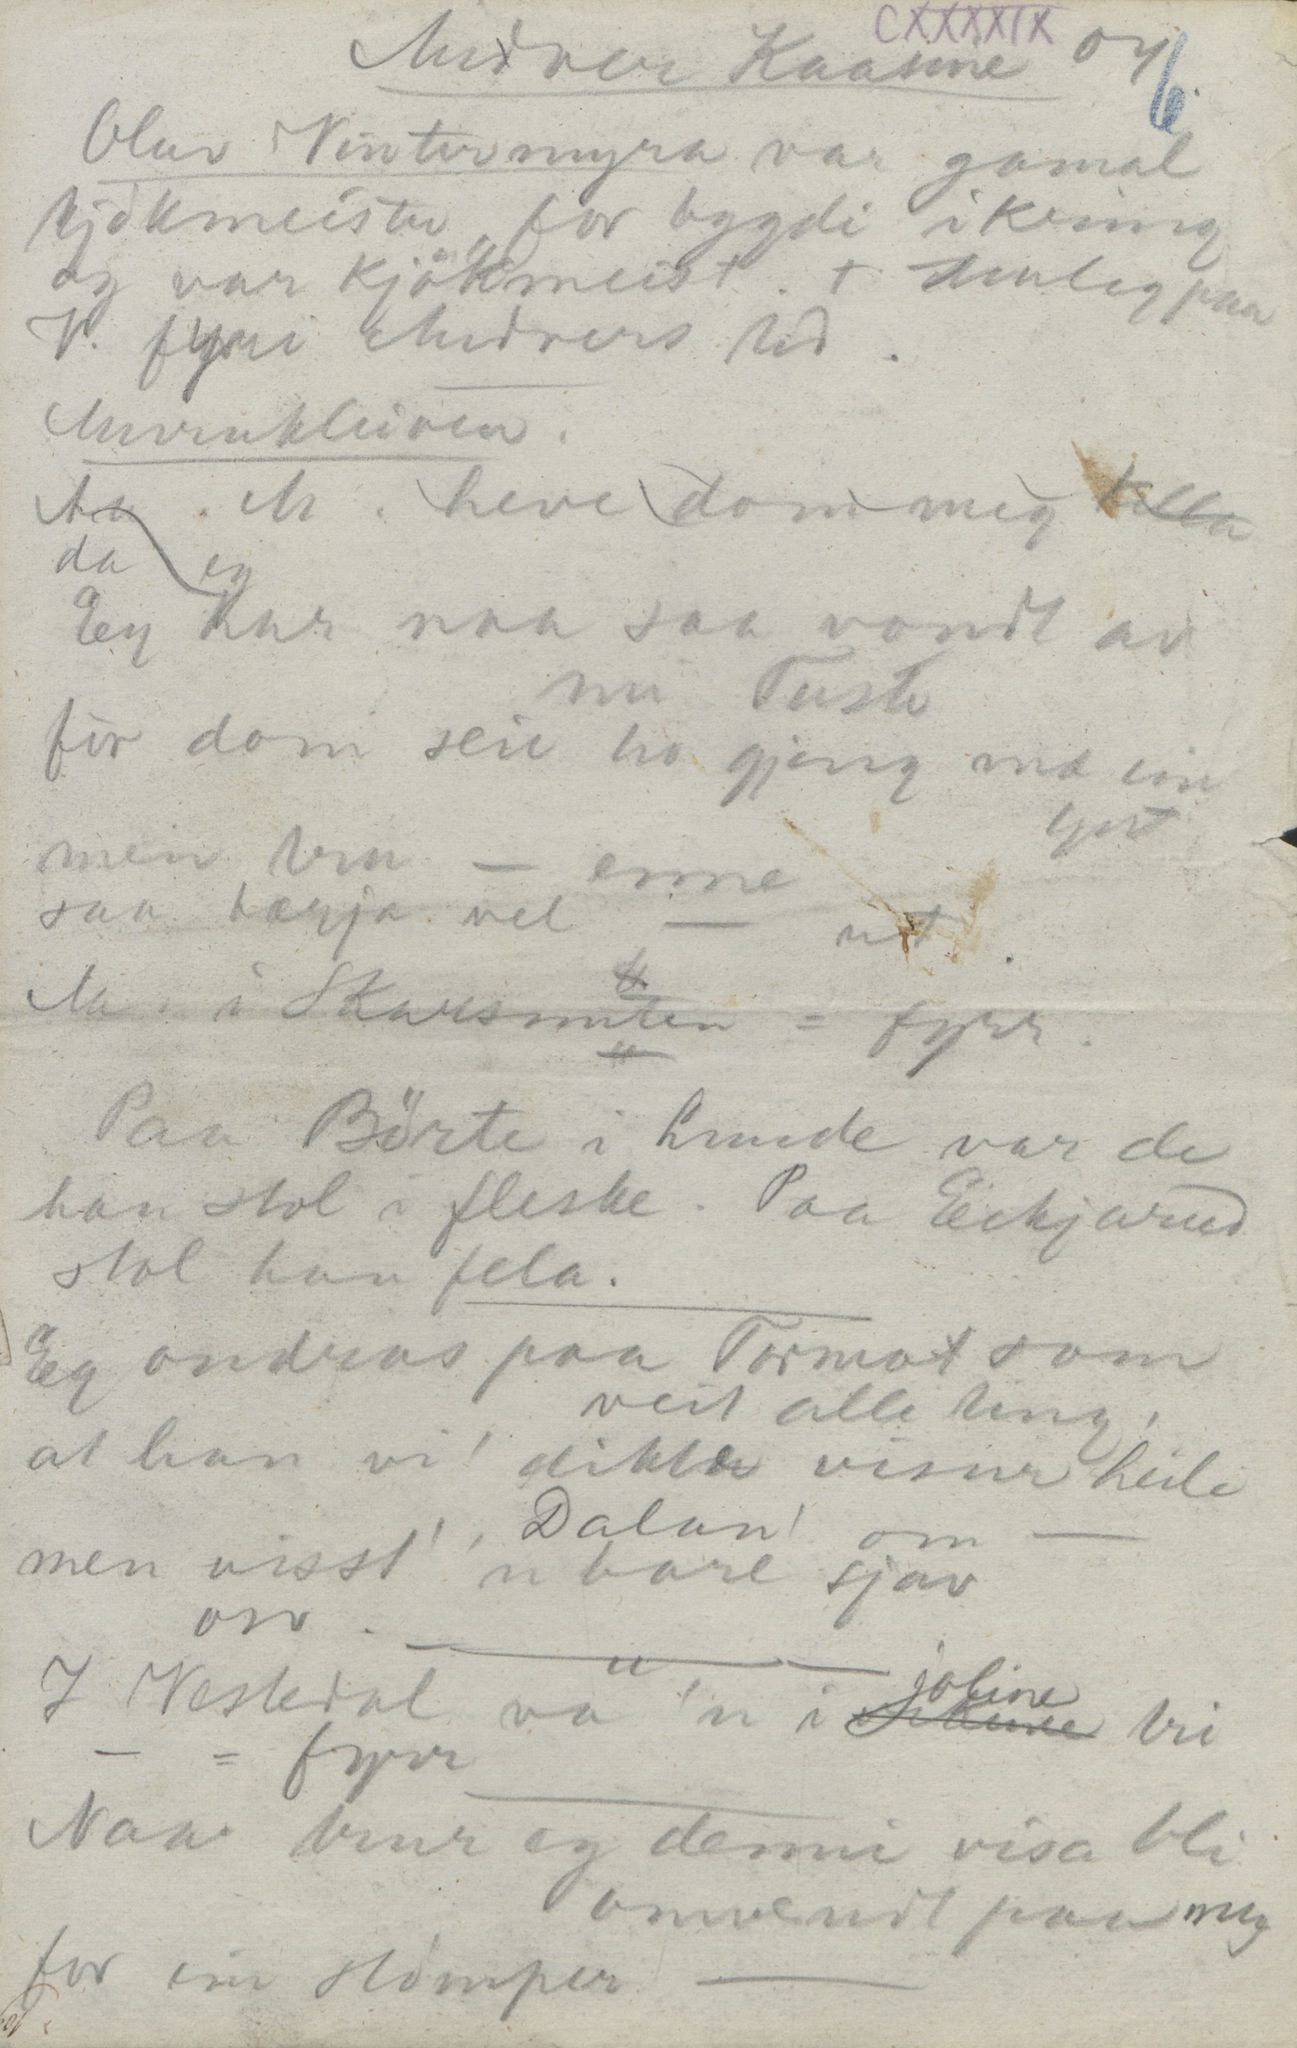 CXXXXIX
Midver Kaasine 07
6.
Olav Vintermyra var gamal
kjökmeister for bygdi ikring
og var kjökmeist. + truleg paa
V. fyrr Midvers tid.
Murukleiven.
Aa. M. heve dom meg killa
da eg
Eg har naa saa vondt av
mi Taust
for dom seie ho gjeng mæ ein
gut
men tru – enne
saa bærja vel — ut.
Aa. i Skarsnuten = fyrr.
Paa Börte i Lunde var de
han stol i fleske. Paa Eikjarud
stol han fela.
Eg ondras paa Tormot som
veit alle ting,
at han vi' dikta visur heile
Dalan' om —
men visst' 'n bare sjav
osv.
I Vestedal va 'n i joline tri
– = fyrr
Naa trur eg denni visa bli
omvendt paa meg
for ein stömper —